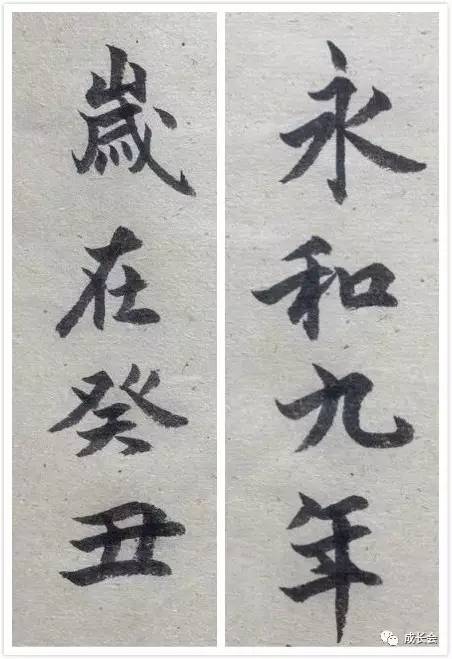 永和九年
歲在癸丑
成长会